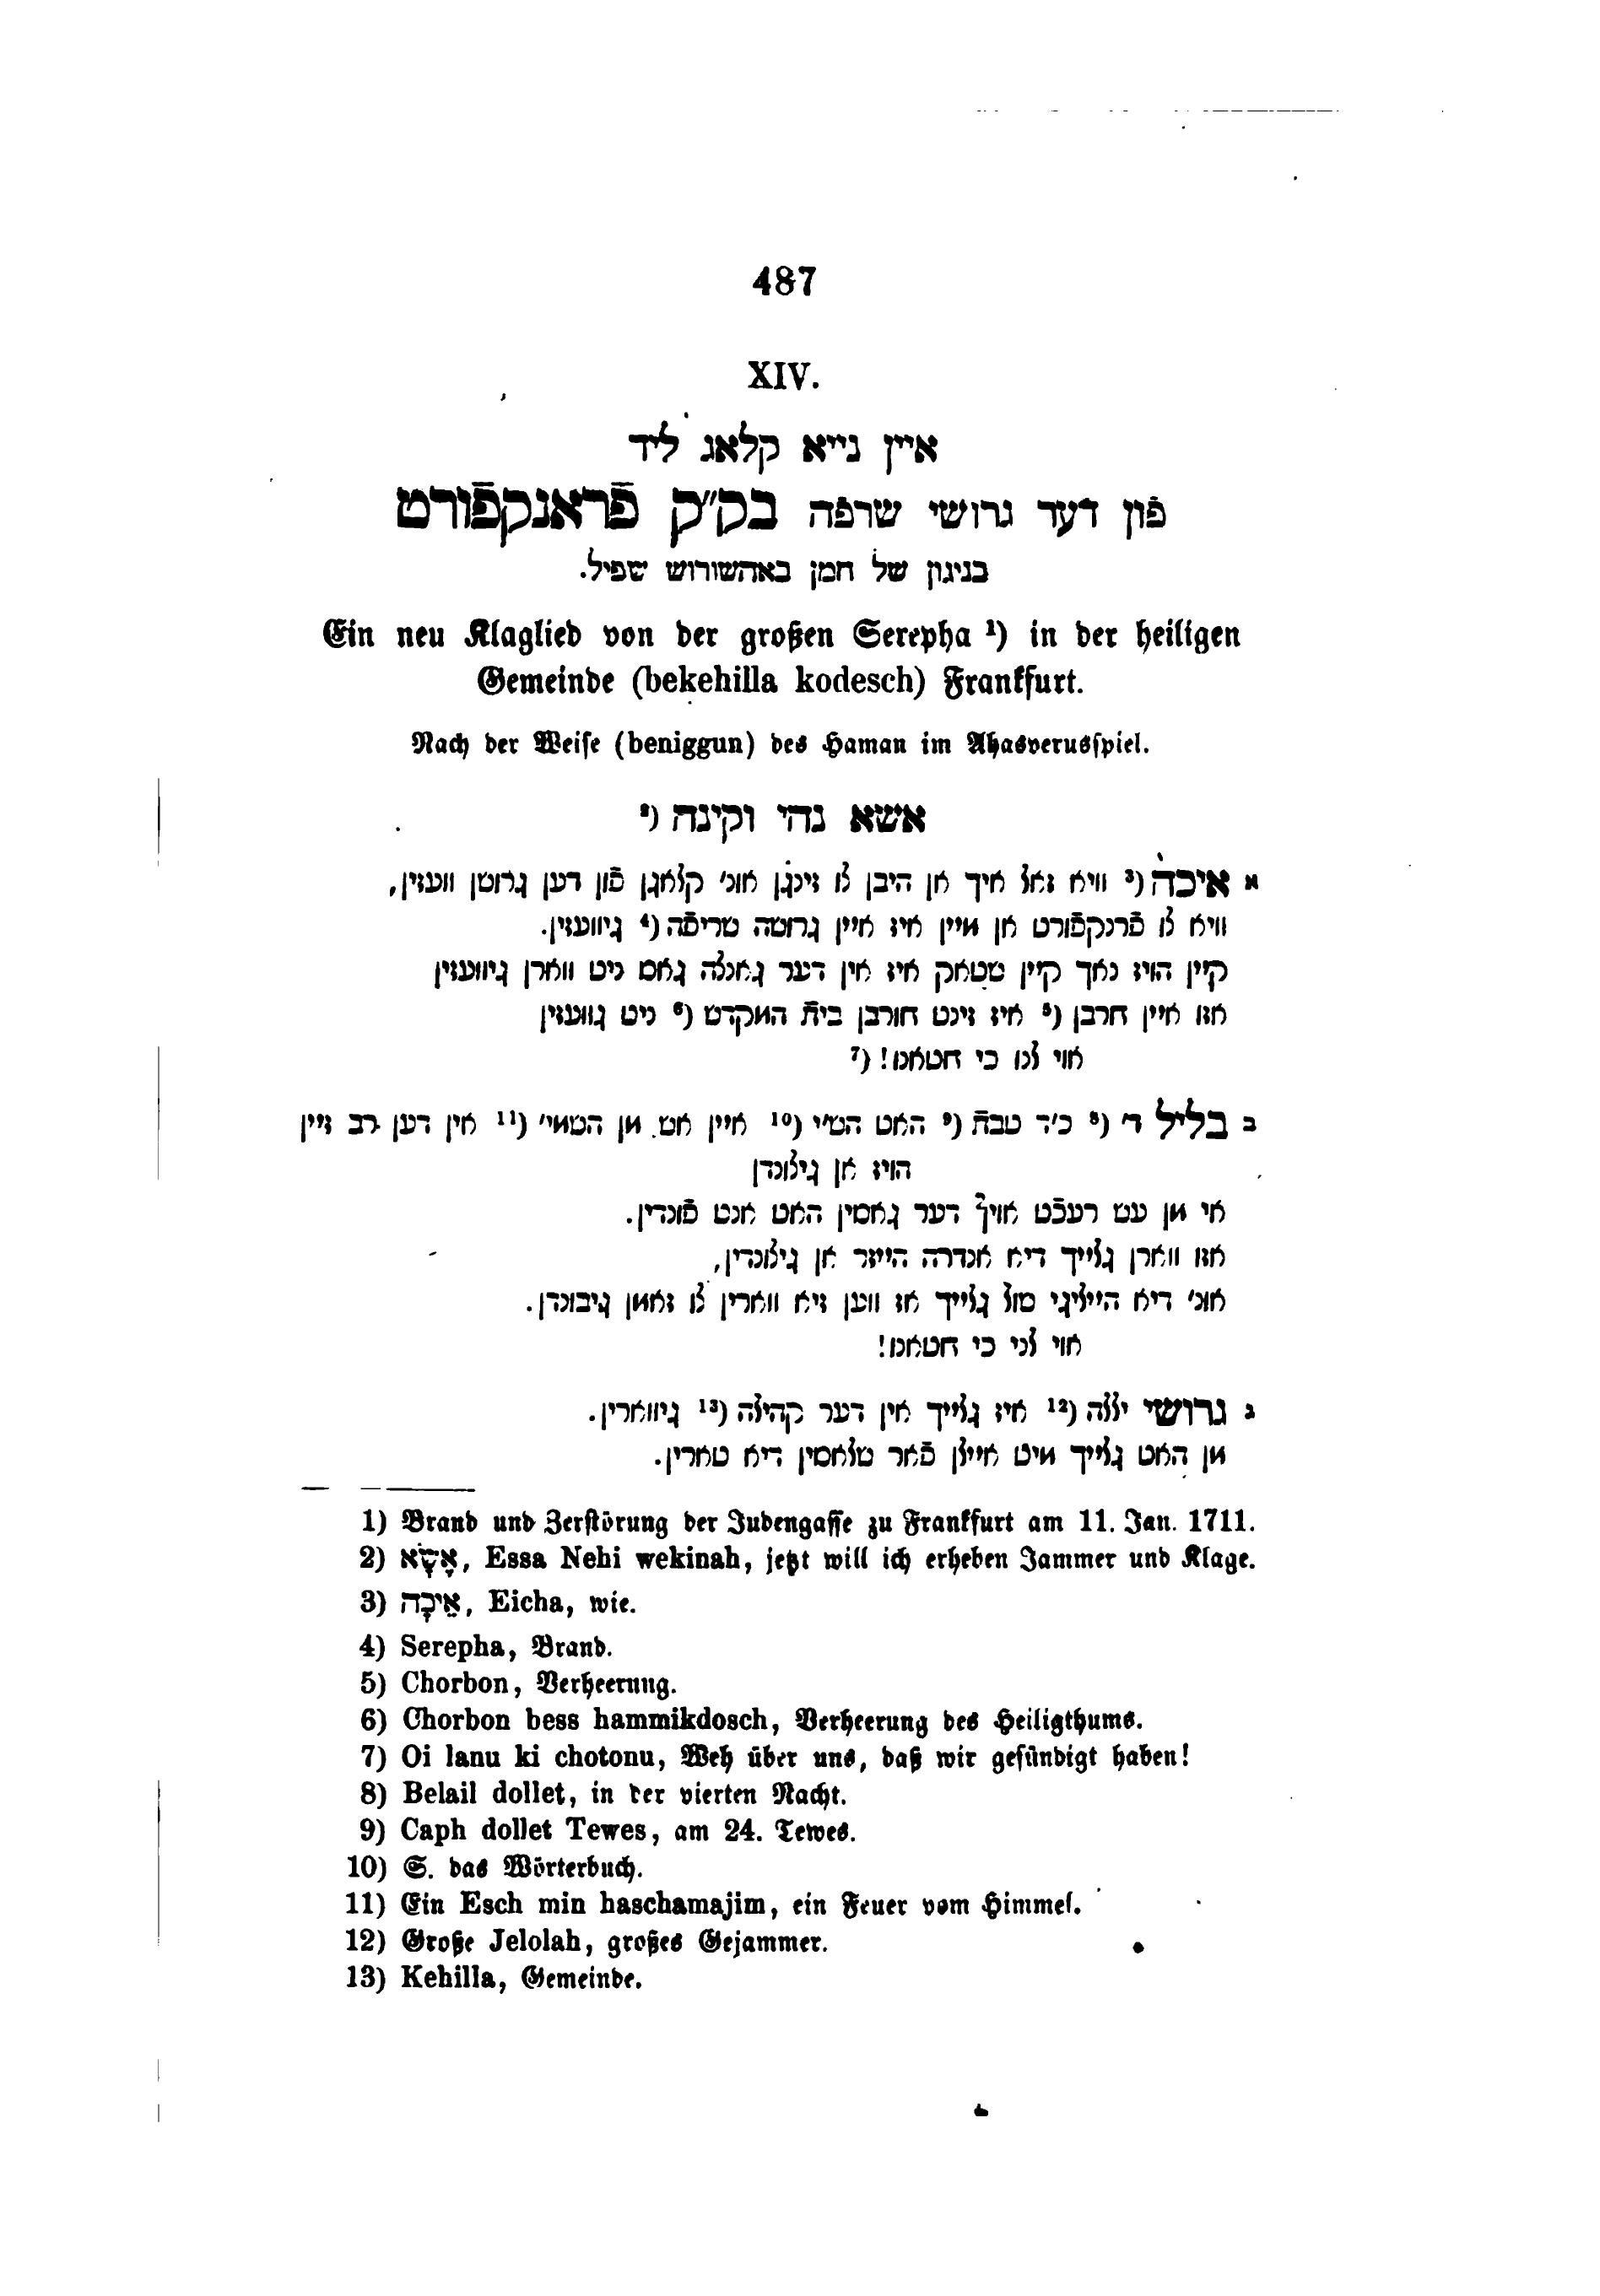 487
XIV.
איין נייא קלאג ליד
פֿון דעד גרושי שרפה בק״ק פֿראנקפֿורט
בניגון של המן באהשורוש שפיל.
Ein neu Klaglied von der großen Serepha ¹) in der heiligen
Gemeinde (bekehilla kodesch) Frankfurt.
Nach der Weise (beniggun) des Haman im Ahasverusspiel.
אשא נהי וקינה (²
א איכה (³ וויא זאל איך אן היבן צו זינגן אונ׳ קלאגן פֿון דען גרושן וועזין,
וויא צו פֿרנקפֿורט אן מיין איז איין גרושה שריפֿה (⁴ גיוועזין.
קיין הויז נאך קיין שטאק איז אין דער גאנצה גאס ניט ווארן גיוועזין
אזו איין חרבן (⁵ איז זינט חורבן בית המקדש (⁶ ניט גוועזין
אוי לנו כי חטאנו! (⁷
ב בליל ד׳ (⁸ כ״ד טבת (⁹ האט הש״י (¹⁰ איין אש מן השמי׳ (¹¹ אין דען רב זיין
הויז אן גיצונדן
אי מן עש רעכֿט אויף דער גאסין האט אנט פֿונדין.
אזו ווארן גלייך דיא אנדרה הייזר אן גיצונדין,
אונ׳ דיא הייליגי שול גלייך אז ווען זיא ווארין צו זאמן גיבונדן.
אוי לני כי חטאנו!
ג גרושי יללה (¹² איז גלייך אין דער קהילה (¹³ גיווארין.
מן האט גלייך מיט איילן פֿאר שלאסין דיא טארין.
1) Brand und Zerstörung der Judengasse zu Frankfurt am 11. Jan. 1711.
2) אֶשָּׂא, Essa Nehi wekinah, jetzt will ich erheben Jammer und Klage.
3) אֵיכָה, Eicha, wie.
4) Serepha, Brand.
5) Chorbon, Verheerung.
6) Chorbon bess hammikdosch, Verheerung des Heiligthums.
7) Oi lanu ki chotonu, Weh über uns, daß wir gesündigt haben!
8) Belail dollet, in der vierten Nacht.
9) Caph dollet Tewes, am 24. Tewes.
10) S. das Wörterbuch.
11) Ein Esch min haschamajim, ein Feuer vom Himmel.
12) Große Jelolah, großes Gejammer.
13) Kehilla, Gemeinde.